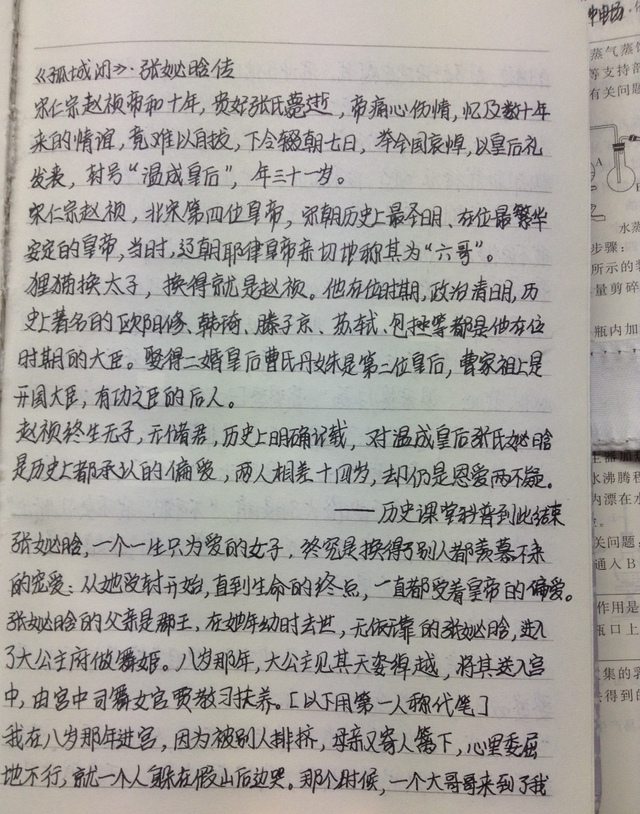 《孤城闭》·张妼晗传
宋仁宗赵祯帝和十年，贵妃张氏薨逝，帝痛心伤情，忆及数十年
来的情谊，竟难以自拔，下令辍朝七日，举全国哀悼，以皇后礼
发丧，封号“温成皇后”，年三十一岁。
宋仁宗赵祯，北宋第四位皇帝，宋朝历史上最圣明、在位最繁华
安定的皇帝，当时，辽朝耶律皇帝亲切地称其为“六哥”。
狸猫换太子，换得就是赵祯。他在位时期，政治清明，历
史上著名的欧阳修、韩琦、滕子京、苏轼、包拯等都是他在位
时期的大臣。娶得二婚皇后曹氏丹姝是第二位皇后，曹家祖上是
开国大臣，有功之臣的后人。
赵祯终生无子，无储君，历史上明确记载，对温成皇后张氏妼晗
是历史上都承认的偏爱，两人相差十四岁，却仍是恩爱两不疑。
——历史课堂科普到此结束
张妼晗，一个一生只为爱的女子，终究是换得了别人都羡慕不来
的宠爱：从她没封开始，直到生命的终点，一直都受着皇帝的偏爱。
张妼晗的父亲是郡王，在她年幼时去世，无依靠的张妼晗，进入
了大公主府做舞姬。八岁那年，大公主见其天姿卓越，将其送入宫
中，由宫中司舞女官贾教习扶养。[以下用第一人称代笔]
我在八岁那年进宫，因为被别人排挤，母亲又寄人篱下，心里委屈
地不行，就一个人躲在假山后边哭。那个时候，一个大哥哥来到了我
蒸气蒸馏
等支持
有关问题
水蒸
步骤：
所示的
量剪碎
瓶内加
水沸腾程
内漂在水
关问题，
通入B
作用是
瓶口上
集的乳
去得到的